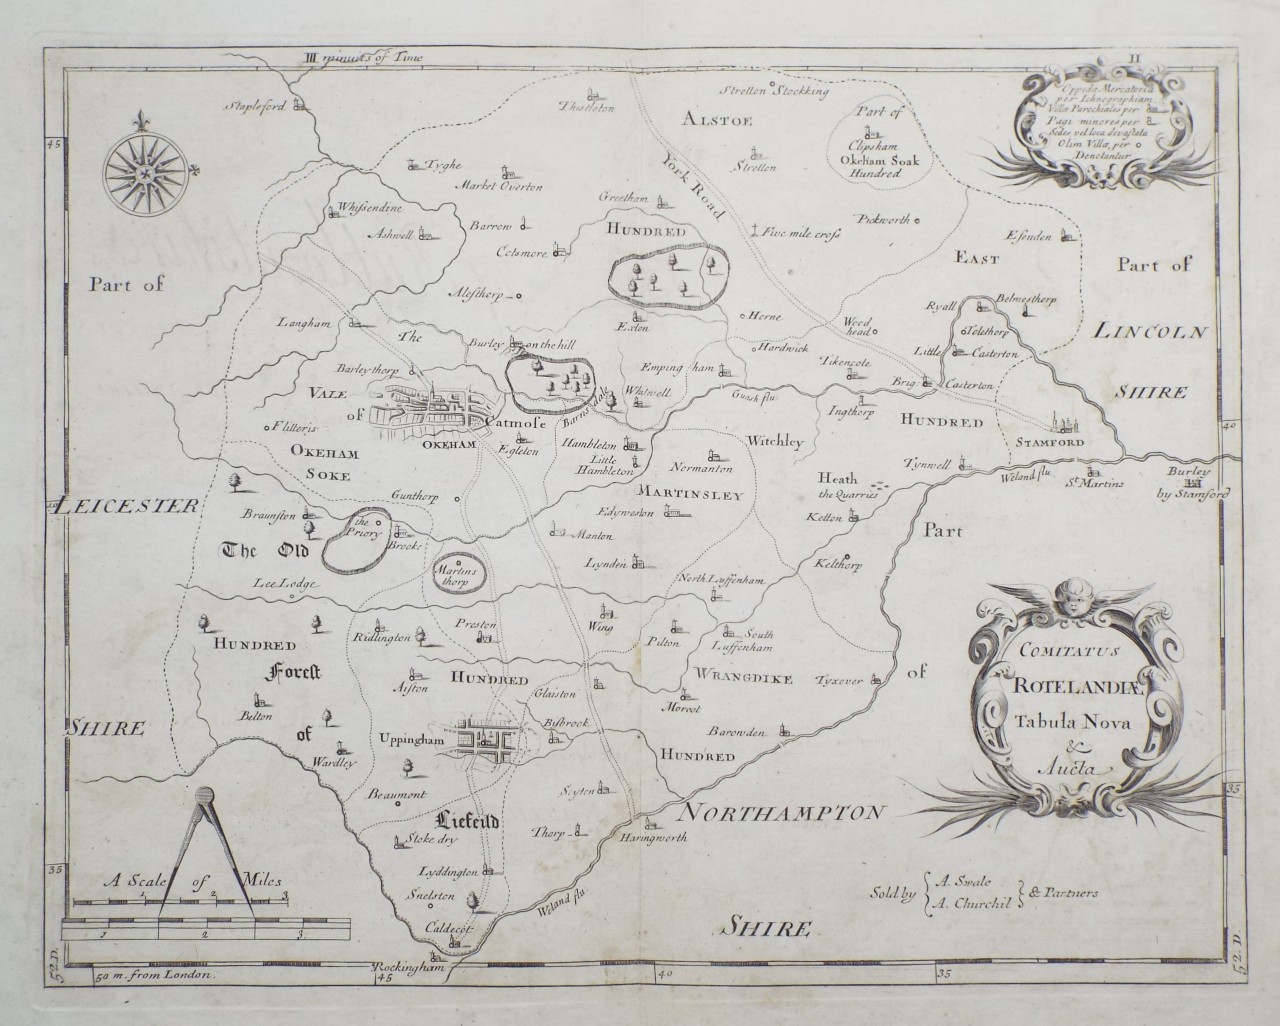 III minuits of Time
II
Oppida Mercatoria
per Ichnographiam
Villæ Parochiales per
Pagi minores per
Sedes vel loca devastata
Olim Villæ, per
Denotantur
Stapleford
Thistleton
Stretton Stockking
ALSTOE
Part of
Clipsham
Okeham Soak
Hundred
45
Tyghe
Market Overton
Stretton
York Road
Whissendine
Greetham
Ashwell
Barrow
HUNDRED
Five mile cross
Pickworth
Essenden
Cotsmore
EAST
Part of
Part of
Alesthorp
Ryall
Belmesthorp
Langham
The
Exton
Horne
Wood
head
Tolethorp
LINCOLN
Burley on the hill
Hardwick
Little
Casterton
Barleythorp
Empingham
Tikencote
VALE
Whitwell
Brig
Casterton
SHIRE
of
Barnsdale
Guash flu.
Ingthorp
HUNDRED
Flitteris
Catmose
OKEHAM
Egleton
Hambleton
Witchley
STAMFORD
40
OKEHAM
SOKE
Little
Hambleton
Normanton
Tynwell
Gunthorp
MARTINSLEY
Heath
the Quarries
Weland flu
St. Martins
Burley
by Stamford
LEICESTER
Braunston
the
Priory
Edyweston
Ketton
The Old
Brooke
Manton
Part
Martins
thorp
Lynden
Kelthorp
Lee Lodge
North Luffenham
HUNDRED
Ridlington
Preston
Wing
Pilton
South
Luffenham
COMITATUS
ROTELANDIÆ
Tabula Nova
&
Aucta
Forest
Aiston
HUNDRED
WRANGDIKE
Tyxover
of
Glaiston
Morcot
Belton
Bisbrook
SHIRE
of
Uppingham
Barowden
Wardley
HUNDRED
Beaumont
Seyton
35
NORTHAMPTON
Liefeild
Thorp
Haringworth
Stoke dry
35
A Scale of Miles
1 2 3
Lyddington
Snelston
Sold by
A. Swale
A. Churchil
& Partners
1 2 3
Weland flu.
Caldecot
SHIRE
52.D.
50 m. from London.
45
Rockingham
40
35
52.D.